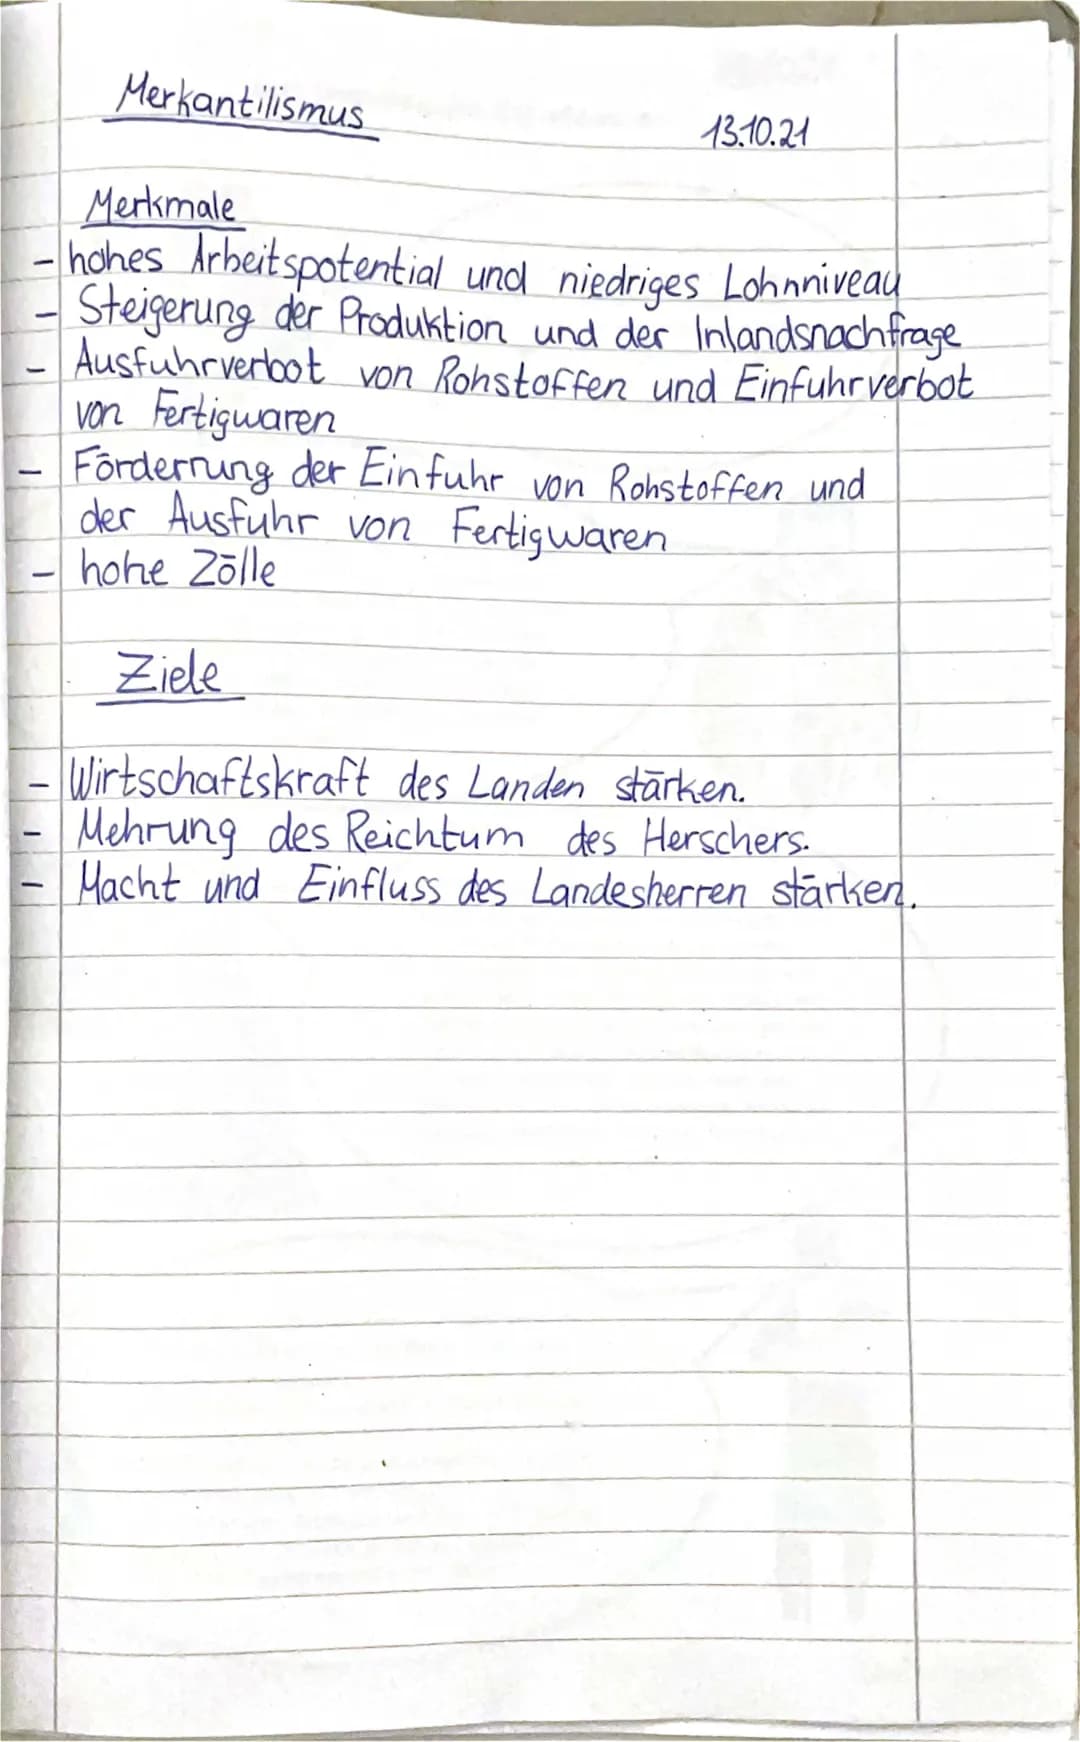 Merkantilismus
13.10.21
Merkmale
- hohes Arbeitspotential und niedriges Lohnniveau
- Steigerung der Produktion und der Inlandsnachfrage
- Ausfuhrverbot von Rohstoffen und Einfuhrverbot
von Fertigwaren
- Förderrung der Einfuhr von Rohstoffen und
der Ausfuhr von Fertigwaren
- hohe Zölle
Ziele
- Wirtschaftskraft des Landen stärken.
- Mehrung des Reichtum des Herschers.
- Macht und Einfluss des Landesherren stärken.